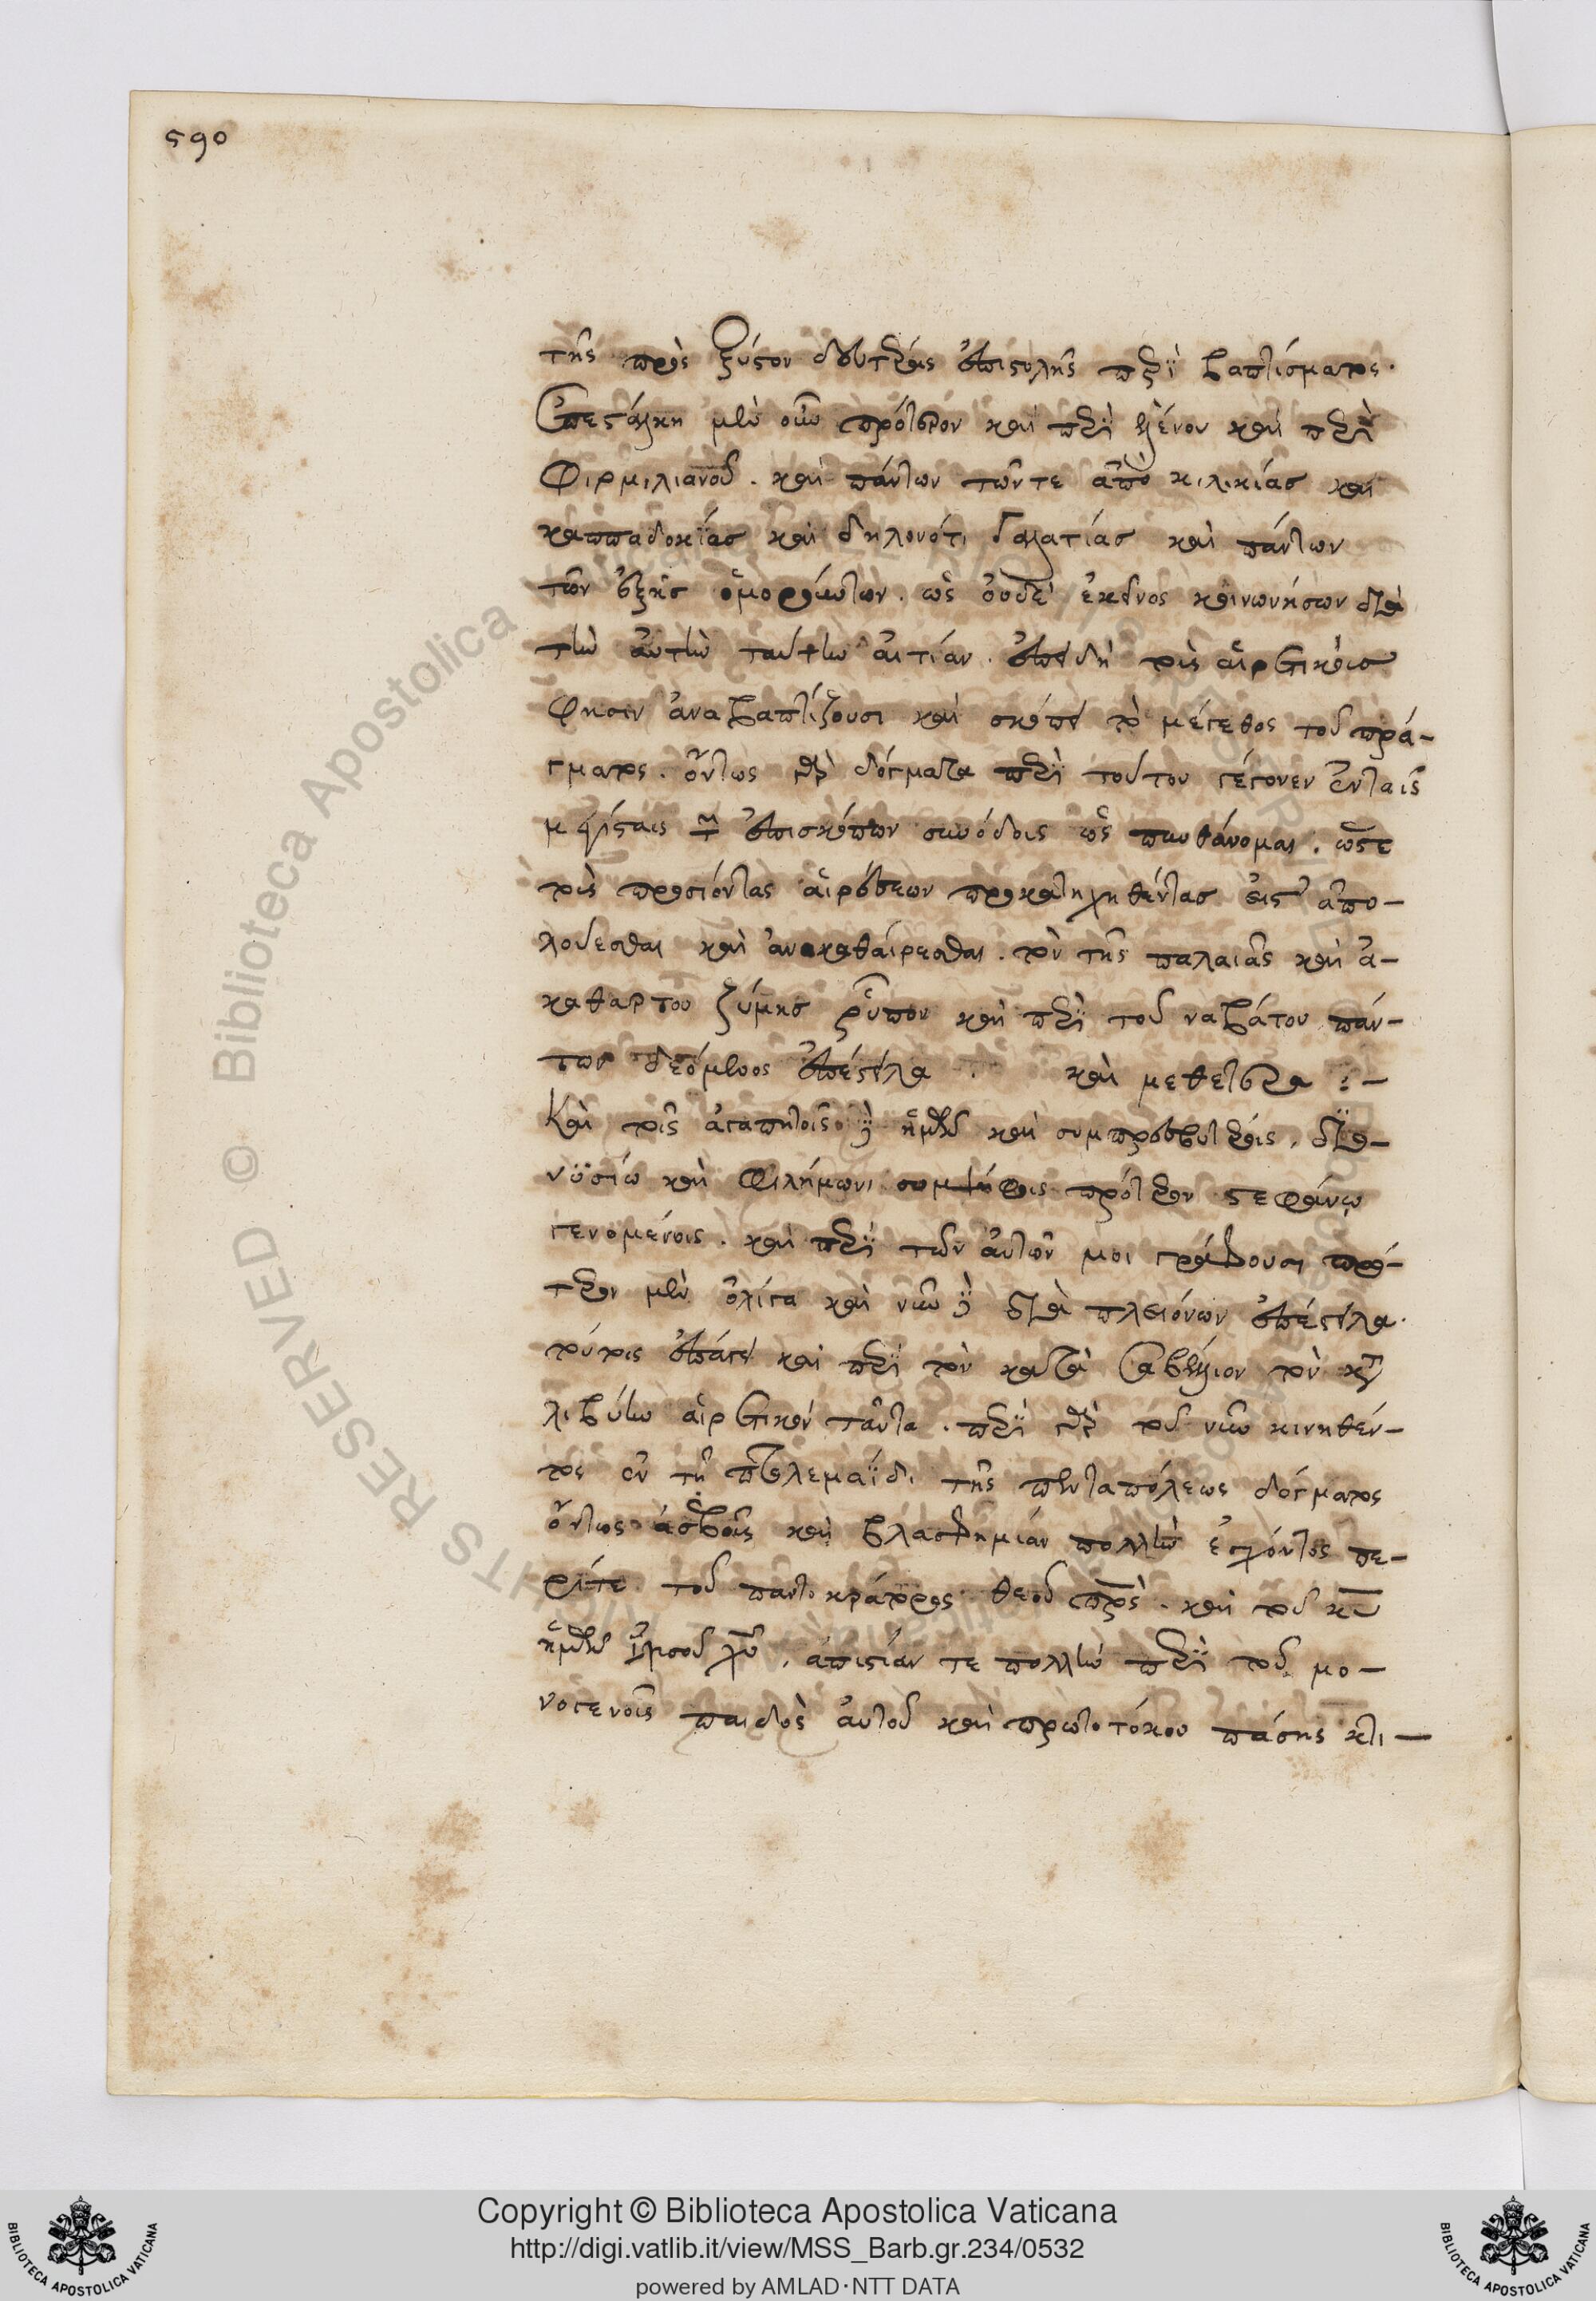 590
τῆς πρὸς ξύστον δευτέρας ἐπιστολῆς περὶ βαπτίσματος.
Ἐπεστάλκη μὲν οὖν πρότερον καὶ περὶ ἑλένου καὶ περὶ
Φιρμιλιανοῦ. καὶ πάντων τῶν τε ἀπὸ κιλικίας καὶ
καππαδοκίας καὶ δηλονότι γαλατίας καὶ πάντων
τῶν ἑξῆς ὁμορούντων. ὡς οὐδὲ ἐκείνοις κοινωνήσων διὰ
τὴν αὐτὴν ταύτην αἰτίαν. ἐπειδὴ τοὺς αἱρετικοὺς
Φησιν ἀναβαπτίζουσι καὶ σκόπει τὸ μέγεθος τοῦ πρά-
γματος. ὄντως γὰρ δόγματα περὶ τούτου γέγονεν ἐν ταῖς
μεγίσταις τῶν ἐπισκόπων συνόδοις ὡς πυνθάνομαι. ὥστε
τοὺς προσιόντας αἱρέσεων προκατηχηθέντας εἶτ' ἀπο-
λούεσθαι καὶ ἀνακαθαίρεσθαι. τὸν τῆς παλαιᾶς καὶ ἀ-
καθάρτου ζύμης ῥύπον καὶ περὶ τοῦ ναβάτου πάν-
των δεόμενος ἐπέστειλα. καὶ μεθ' ἕτερα :-
Καὶ τοῖς ἀγαπητοῖς δὲ ἡμῶν καὶ συμπρεσβυτέροις. διο-
νυσίω καὶ Φιλήμωνι συμψήφοις πρότερον στεφάνῳ
γενομένοις. καὶ περὶ τῶν αὐτῶν μοι γράφουσι πρό-
τερον μὲν ὀλίγα καὶ νῦν δὲ διὰ πλειόνων ἐπέστειλα.
τούτοις ἐπάγει καὶ περὶ τῶν κατὰ Σαβέλλιον τῶν κατὰ
λιβύην αἱρετικῶν ταῦτα. περὶ γὰρ τοῦ νῦν κινηθέν-
τος ἐν τῇ πτολεμαΐδι τῆς πενταπόλεως δόγματος
ὄντως ἀσεβοῦς καὶ βλασφημίαν πολλὴν ἔχοντος πε-
ρί τε τοῦ παντοκράτορος θεοῦ πρς. καὶ τοῦ κυ
ἡμῶν Ἰησοῦ χυ. ἀπιστίαν τε πολλὴν περὶ τοῦ μο-
νογενοῦς παιδὸς αὐτοῦ καὶ πρωτοτόκου πάσης κτί-
Copyright © Biblioteca Apostolica Vaticana
http://digi.vatlib.it/view/MSS_Barb.gr.234/0532
powered by AMLAD·NTT DATA
BIBLIOTECA APOSTOLICA VATICANA
BIBLIOTECA APOSTOLICA VATICANA